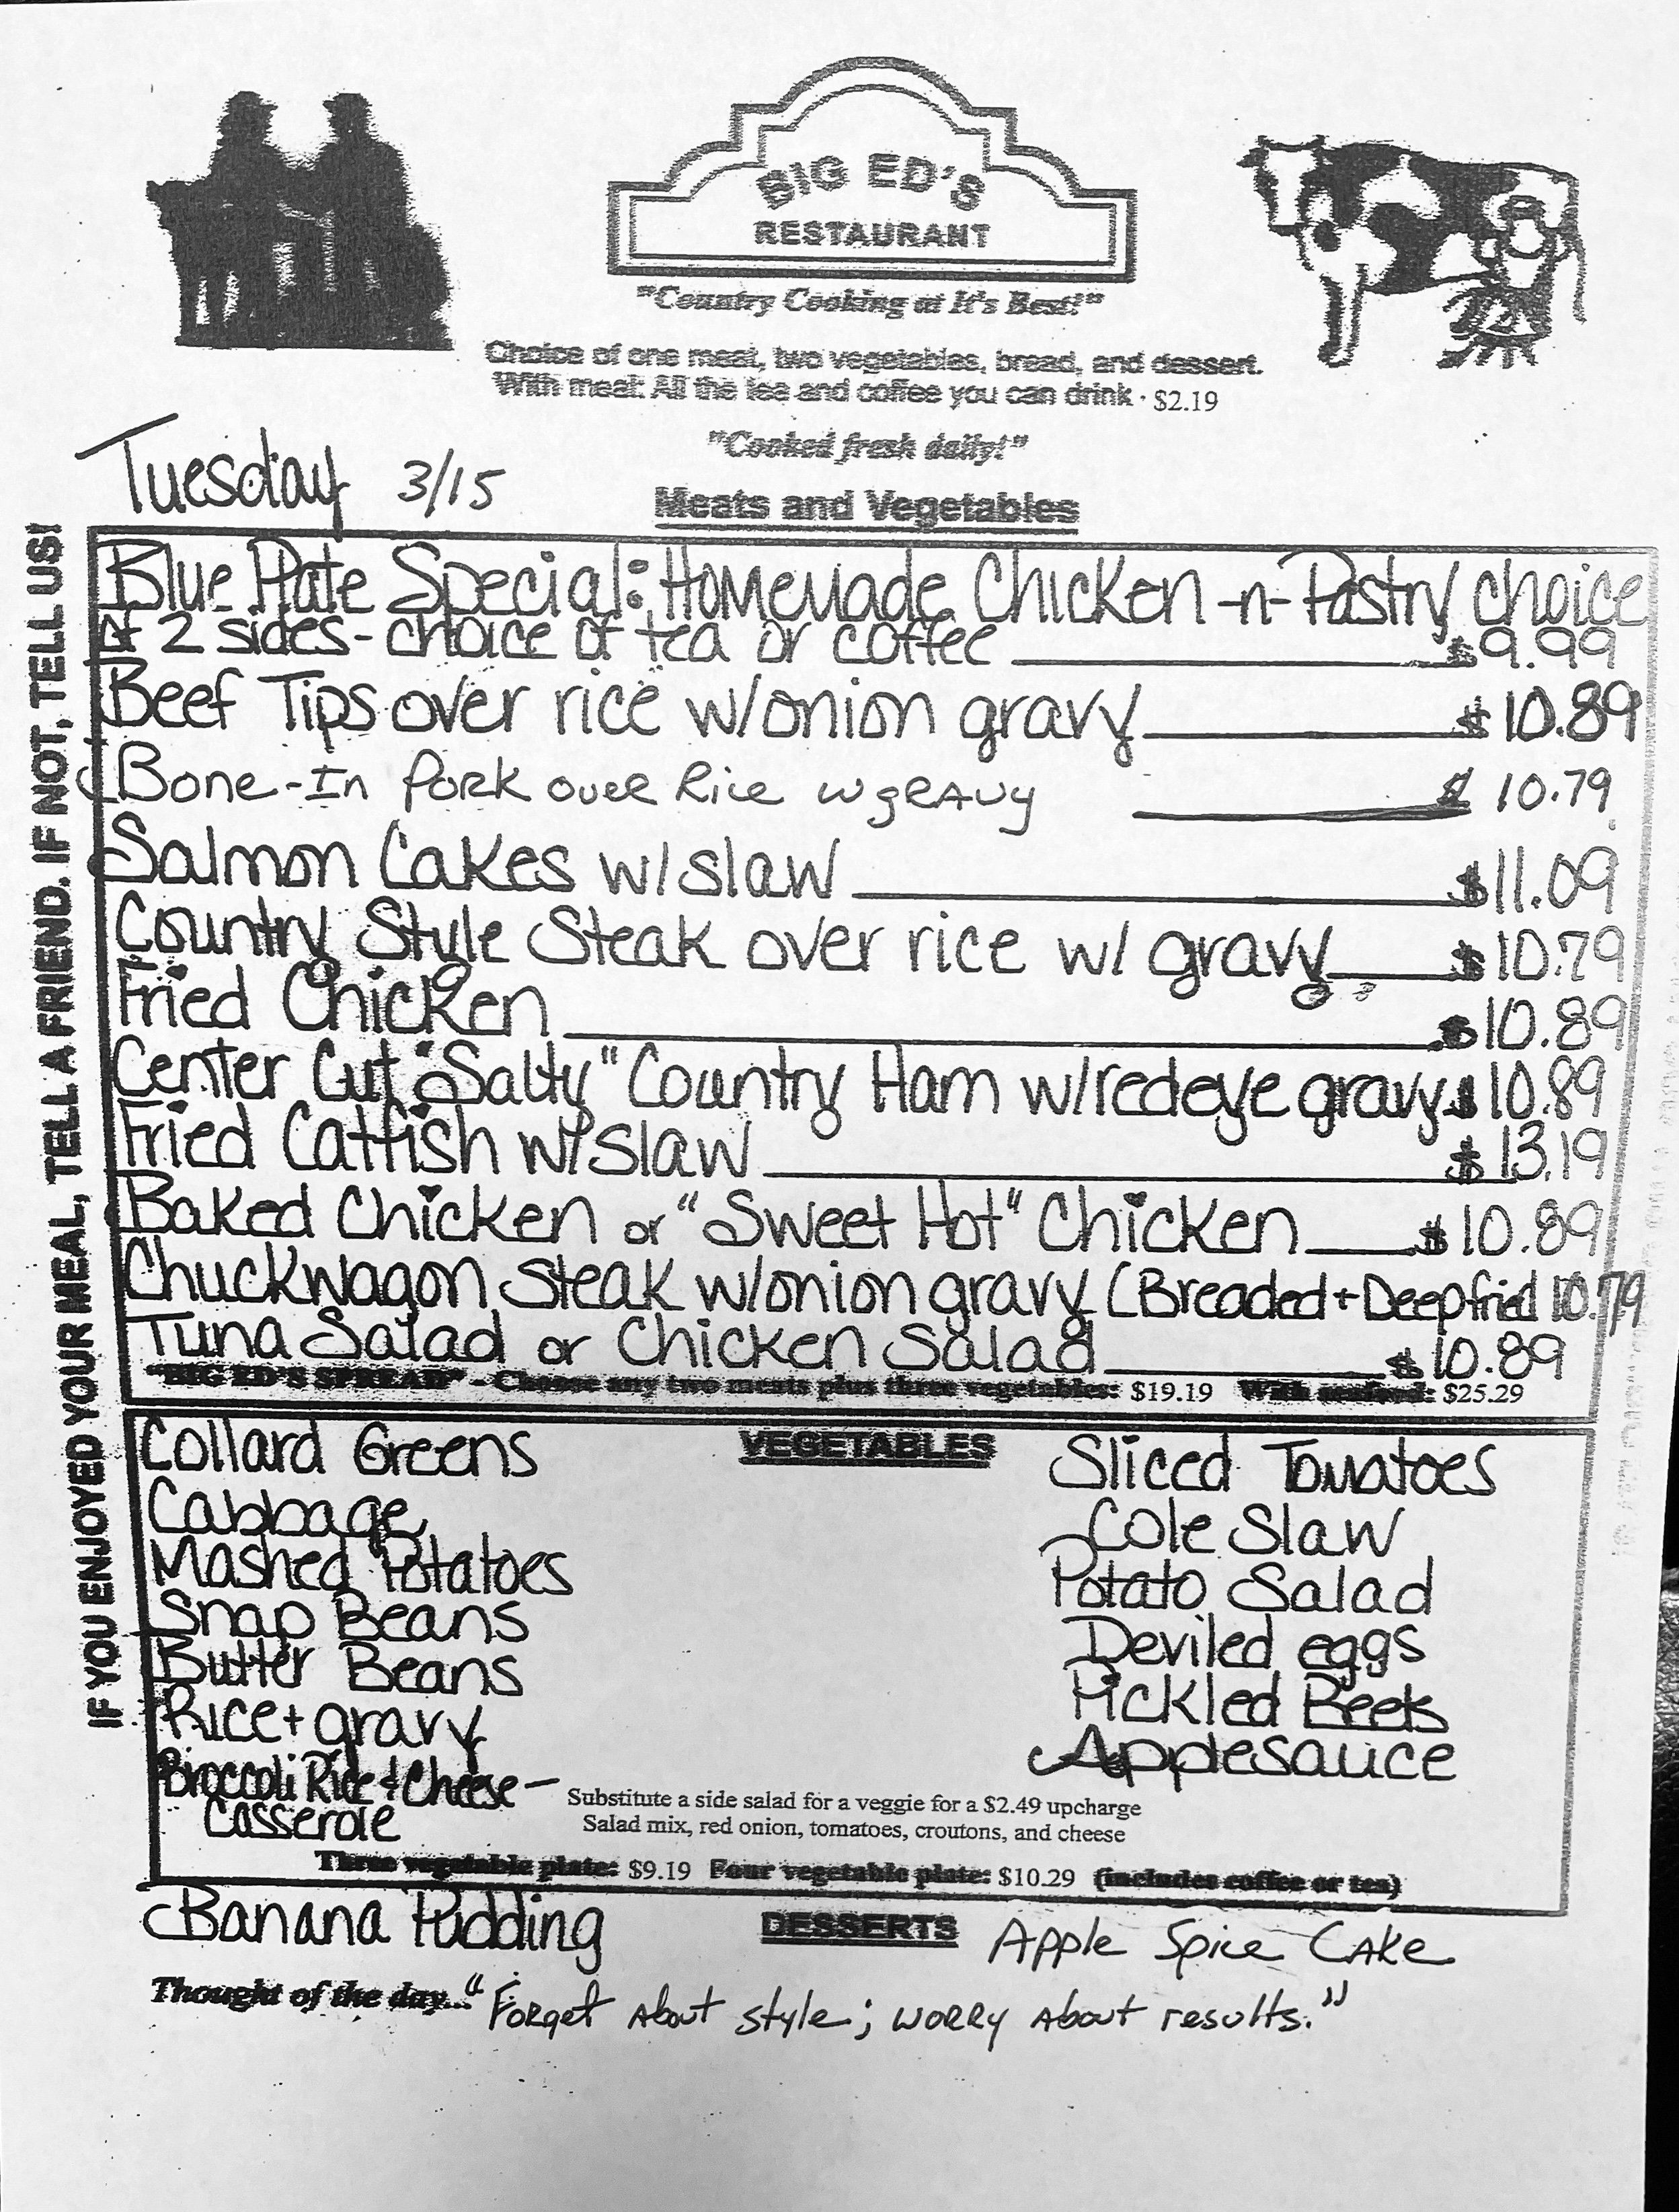 BIG ED'S
RESTAURANT
"Country Cooking at It's Best!"
Choice of one meat, two vegetables, bread, and dessert.
With meal: All the tea and coffee you can drink · $2.19
"Cooked fresh daily!"
Tuesday 3/15
Meats and Vegetables
IF YOU ENJOYED YOUR MEAL, TELL A FRIEND. IF NOT, TELL US!
Blue Plate Special: Homemade Chicken -n- Pastry choice
of 2 sides - choice of tea or coffee $9.99
Beef Tips over rice w/onion gravy $10.89
Bone-In Pork over Rice w gravy $10.79
Salmon Cakes w/slaw $11.09
Country Style Steak over rice w/ gravy $10.79
Fried Chicken $10.89
Center Cut "Salty" Country Ham w/redeye gravy $10.89
Fried Catfish w/slaw $13.19
Baked Chicken or "Sweet Hot" Chicken $10.89
Chuckwagon Steak w/onion gravy (Breaded + Deepfried 10.79
Tuna Salad or Chicken Salad $10.89
"BIG ED'S SPREAD" - Choose any two meats plus three vegetables: $19.19 With seafood: $25.29
VEGETABLES
Collard Greens
Cabbage
Mashed Potatoes
Snap Beans
Butter Beans
Rice + gravy
Broccoli Rice & Cheese -
Casserole
Sliced Tomatoes
Cole Slaw
Potato Salad
Deviled eggs
Pickled Beets
Applesauce
Substitute a side salad for a veggie for a $2.49 upcharge
Salad mix, red onion, tomatoes, croutons, and cheese
Three vegetable plate: $9.19 Four vegetable plate: $10.29 (includes coffee or tea)
Banana Pudding
DESSERTS
Apple Spice Cake
Thought of the day... "Forget about style; worry about results."